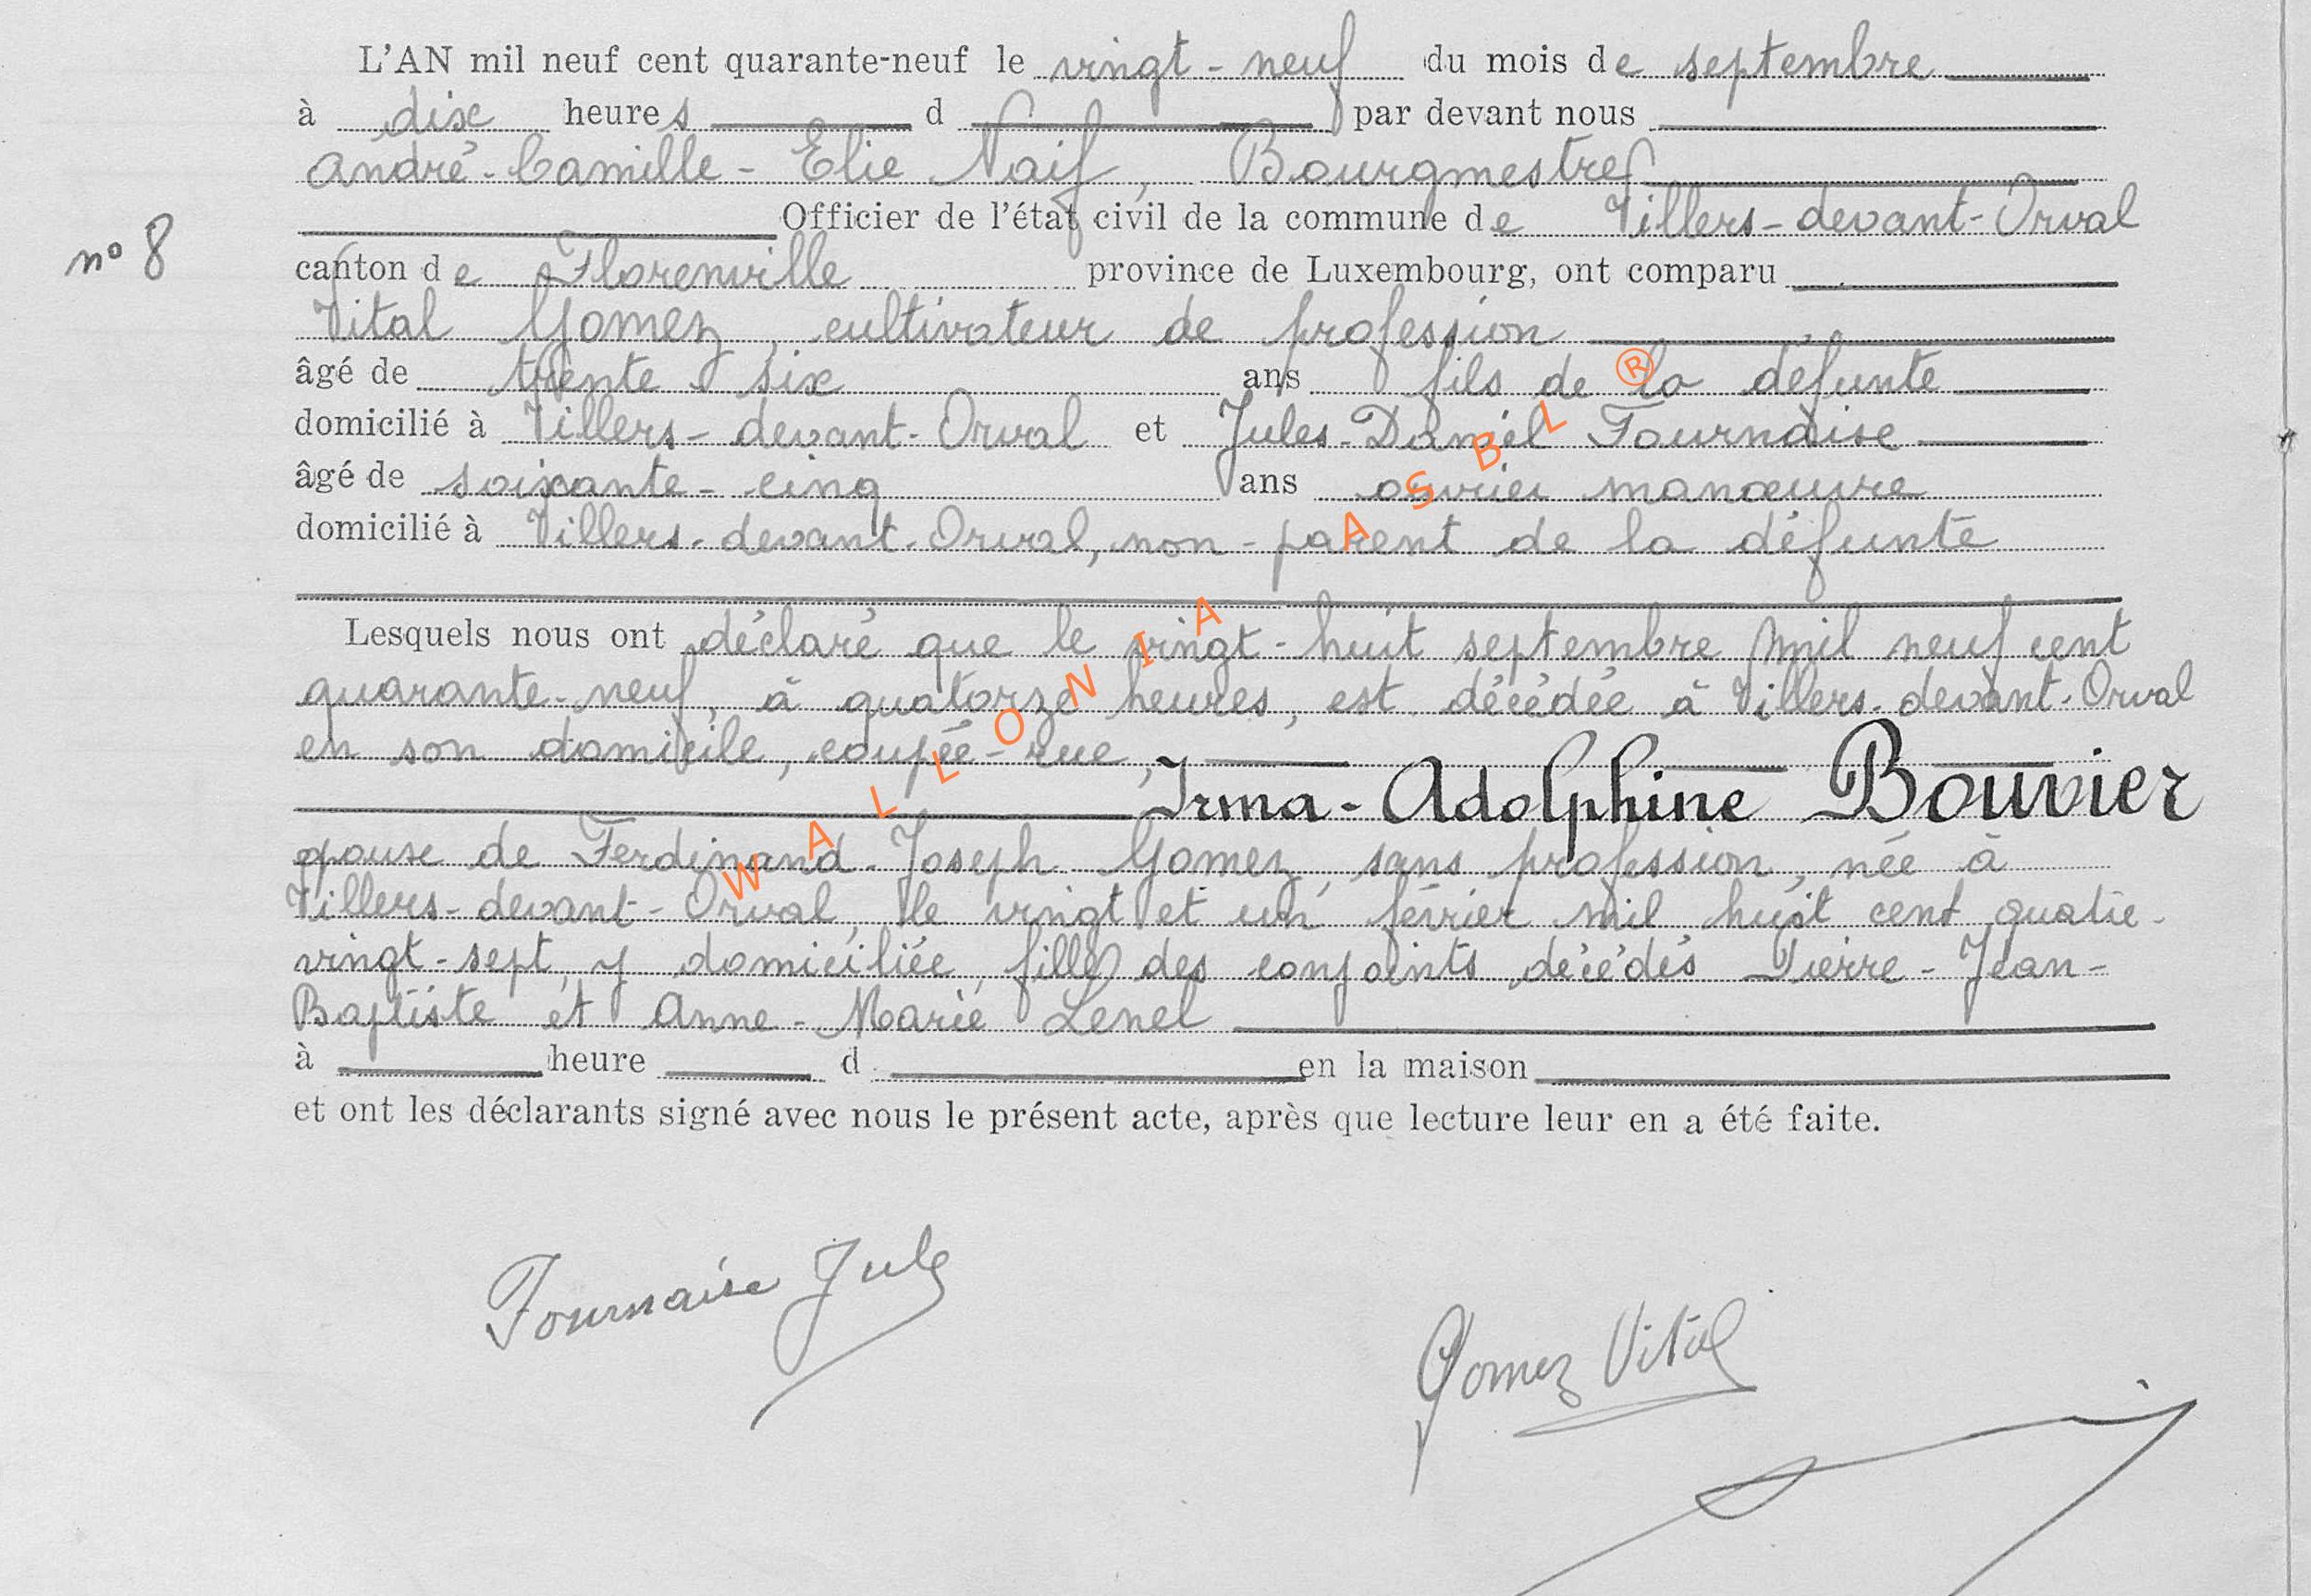 L'AN mil neuf cent quarante-neuf le vingt-neuf du mois de septembre
à dix heures d par devant nous
André-Camille-Elie Naif, Bourgmestre
Officier de l'état civil de la commune de Villers-devant-Orval
n° 8
canton de Florenville province de Luxembourg, ont comparu
Vital Gomez, cultivateur de profession
âgé de trente six ans fils de la défunte
domicilié à Villers-devant-Orval et Jules-Daniel Fournaise
âgé de soixante-cinq ans ouvrier manœuvre
domicilié à Villers-devant-Orval, non-parent de la défunte
Lesquels nous ont déclaré que le vingt-huit septembre mil neuf cent
quarante-neuf, à quatorze heures, est décédée à Villers-devant-Orval
en son domicile, coupée-rue,
Irma-Adolphine Bouvier
épouse de Ferdinand-Joseph Gomez, sans profession, née à
Villers-devant-Orval, le vingt et un février mil huit cent quatre-
vingt-sept, y domiciliée, fille des conjoints décédés Pierre-Jean-
Baptiste et Anne-Marie Lenel
à heure d en la maison
et ont les déclarants signé avec nous le présent acte, après que lecture leur en a été faite.
Fournaise Jules
Gomez Vital
WALLONIA ASBL ®